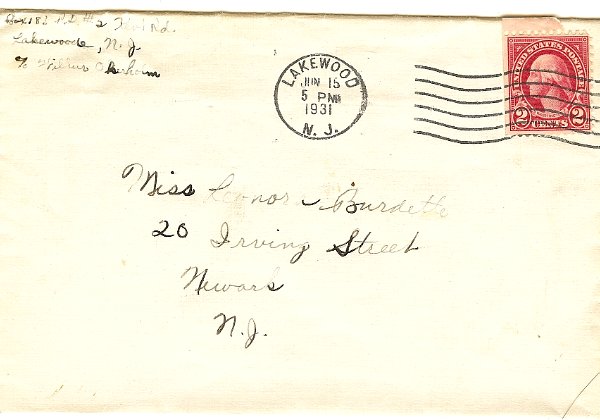 Box 182 R.D. #2
Lakewood, N.J.
℅ Wilbur
LAKEWOOD
JUN 15
5 PM
1931
N. J.
UNITED STATES POSTAGE
2 CENTS 2
Miss Leonor Burdette
20 Irving Street
Newark
N.J.